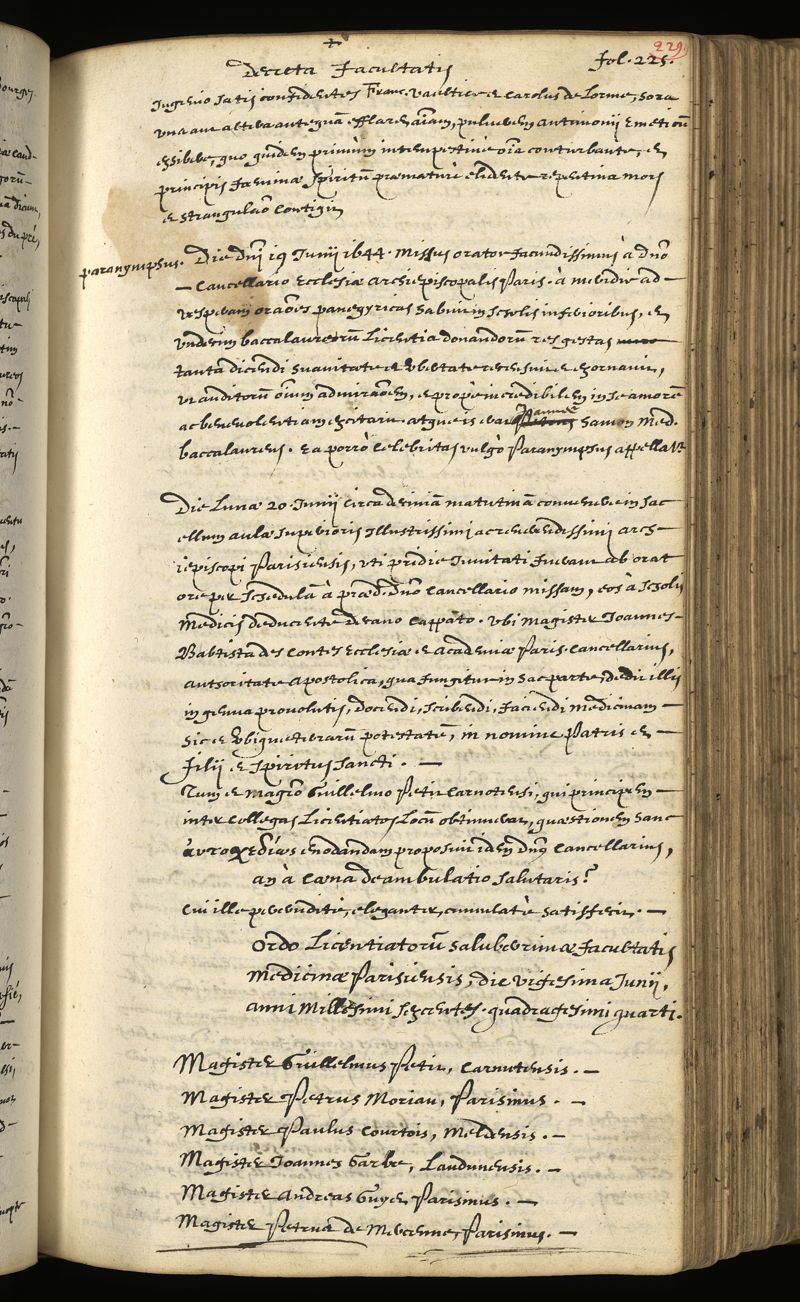 229.
Decreta Facultatis
fol. 225.
Ingenio satis confidentes Franc. Vaultier et Carolus de Lorme, hora
una aut altera antequam efflaret aĩam, pulverem antimonii emeticũ
exhibere, quo quidem primùm intempestivè oĩa conturbante, et
principis fœminæ spiritũ præmaturè elidente repentina mors
et strangulaõ contigit
paranymphus.
Die dnĩ 19 Junii 1644. Missus orator facundissimus à dnõ
Cancellario Ecclesiæ Archiepiscopalis Paris. à meridie ad
vesperam oraões panegyricas habuit in scholis inferioribus, et
undecim baccalaureorũ Licentia donandorũ res gestas
tanta dicendi suavitate et ubertate recensuit et exornavit,
ut auditorũ oĩum admiraõem, et propè incredibilem in se amorẽ
ac benevolentiam excitarit. atque is erat Joannes Hamon Med.
baccalaureus. ea porrò celebritas vulgò Paranymphus appellatr
Die Lunæ 20. Junii circa decimã matutinã convenere in sac
ellum aulæ superioris Illustrissimi ac reverendissimi arch-
iepiscopi Parisiensis, uti pridie invitati fuerant ab orat
ore per schedulã à præd. dnõ Cancellario missam, eos à scholis
Medicis deducente decano cappato. ubi magister Joannes-
Baptista des Contes Ecclesiæ et Academiæ Paris. Cancellarius,
authoritate Apostolica, qua fungitur in hac parte, dedit illis
in genua provolutis, docendi, scribendi, faciendi medicinam
hic et ubique terarũ potestatẽ, in nomine Patris et
filii et spiritus sancti. —
Tum et magrõ Guillelmo Petit Carnotensi, qui principem
inter collegas Licentiatos Locũ obtinuerat, quæstionem hanc
αυτοχεδίως enodandam proposuit idem dnus Cancellarius,
an à Cœna deambulatio salutaris?
Cui ille pererudité, eleganter, cumulatè satisfecit. —
Ordo Licentiatorũ saluberrimæ facultatis
Medicinæ Parisiensis, die vigesima Junii,
anni Millesimi sexcentes. quadragesimi quarti.
Magister Guillelmus Petit, Carnutensis. —
Magister Petrus Moriau, Parisinus. —
Magister Paulus Courtois, Meldensis. —
Magister Joannes Garbe, Laudunensis. —
Magister Andreas Guyet, Parisinus. —
Magister Petrus de Mercenne, Parisinus. —